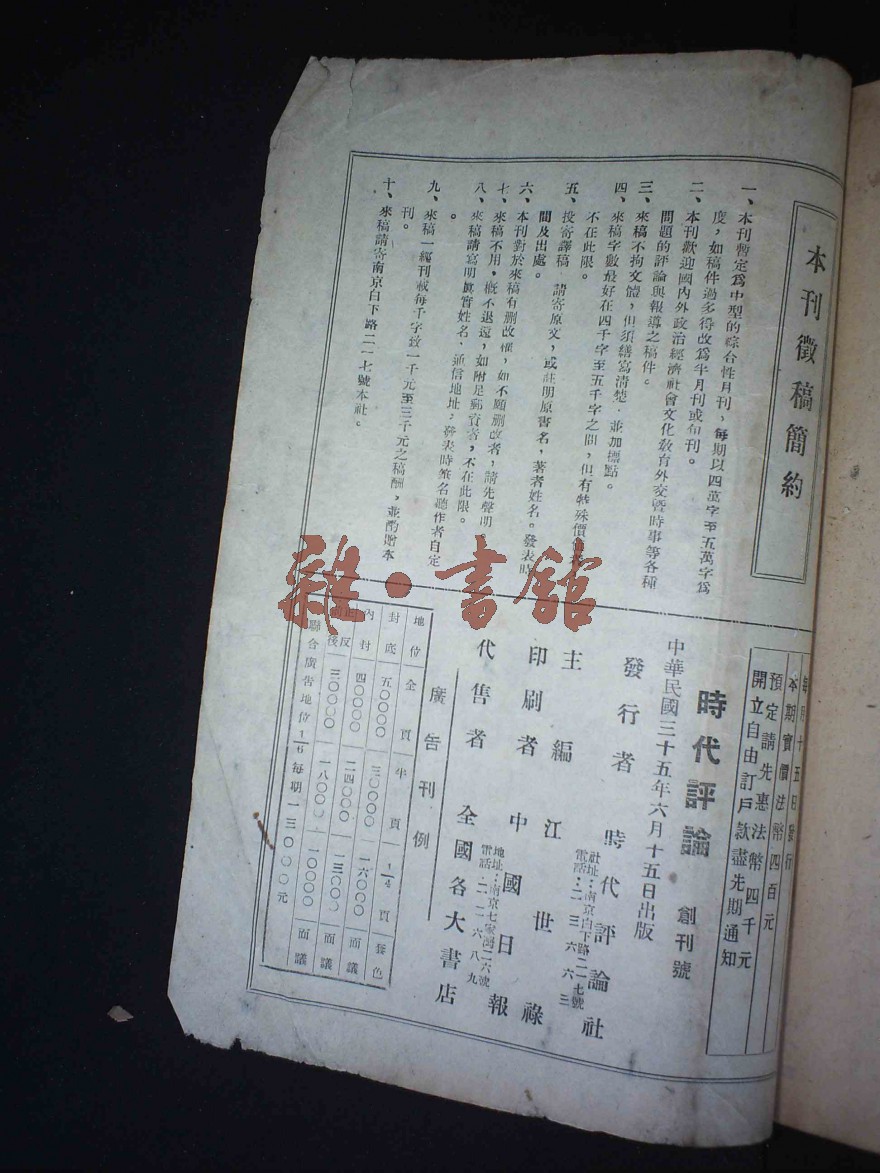 本刊徵稿簡約
一、本刊暫定爲中型的綜合性月刊，每期以四萬字至五萬字爲
度，如稿件過多得改爲半月刊或旬刊。
二、本刊歡迎國內外政治經濟社會文化敎育外交暨時事等各種
問題的評論與報導之稿件。
三、來稿不拘文體，但須繕寫淸楚．並加標點。
四、來稿字數最好在四千字至五千字之間，但有特殊價値者
不在此限。
五、投寄譯稿　請寄原文，或註明原書名，著者姓名。發表時
間及出處。
六、本刊對於來稿有删改權，如不願删改者，請先聲明
七、來稿不用，槪不退還，如附足郵資者，不在此限。
八、來稿請寫明眞實姓名、通信地址，發表時筆名聽作者自定
。
九、來稿一經刊載每千字致一千元至三千元之稿酬，並酌贈本
刊。
十、來稿請寄南京白下路二一七號本社。
每月十五日發行
本期實價法幣四百元
預定請先惠法幣四千元
開立自由訂戶款盡先期通知
時代評論　創刊號
中華民國三十五年六月十五日出版
發行者　時代評論社
社址：南京白下路二一七號
電話：二三六六三
主編　江世祿
印刷者　中國日報
地址：南京七家灣二六號
電話：二二六八九
代售者　全國各大書店
廣告刊例
地位　全頁　半頁　1/4頁　套色
封底　五〇〇〇〇　三〇〇〇〇　一六〇〇〇　面議
內封　四〇〇〇〇　二四〇〇〇　一三〇〇〇　面議
正反前後　三〇〇〇〇　一八〇〇〇　一〇〇〇〇　面議
聯合廣告地位1/6每期一三〇〇〇元
雜·書館